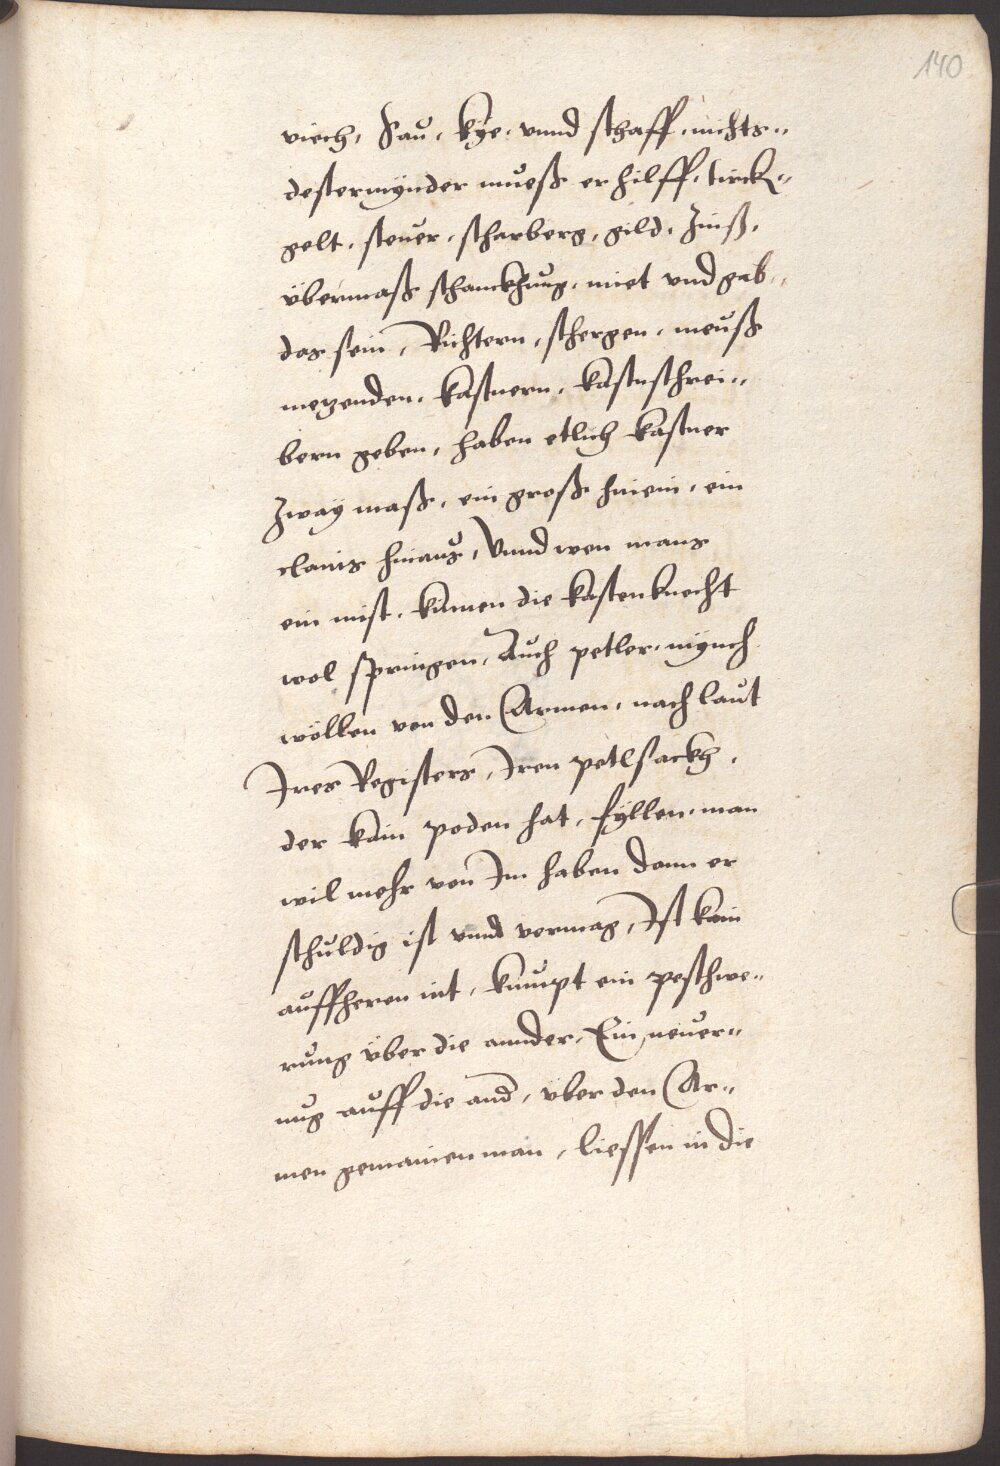 140
viech, Sau, kye, vnnd schaff, nichts„
destermÿnder mueß er hilff, tirckh„
gelt, steuer, scharberg, gild, Zinß,
übermaß schanckhung, miet vnd gab„
das sein, Richtern, schergen, meuß
metzenden, kastnern, kastnschrei„
bern geben, haben etlich kastner
Zwaÿ maß, ein groß hinein, ein
clains hinaus, Vnnd wen mans
ein mist, künnen die kastenknecht
wol springen, Auch petler, mÿnch
wöllen von den Armen, nach laut
Ires Registers, Iren petlsackh,
der kain poden hat, fÿllen, man
wil mehr von Im haben denn er
schuldig ist vnnd vermag, Ist kain
auffheren nit, knüpt ein peschwe„
rung über die annder, Ein neüer„
ung auff die and, über den Ar„
men gemainen man, liessen in die